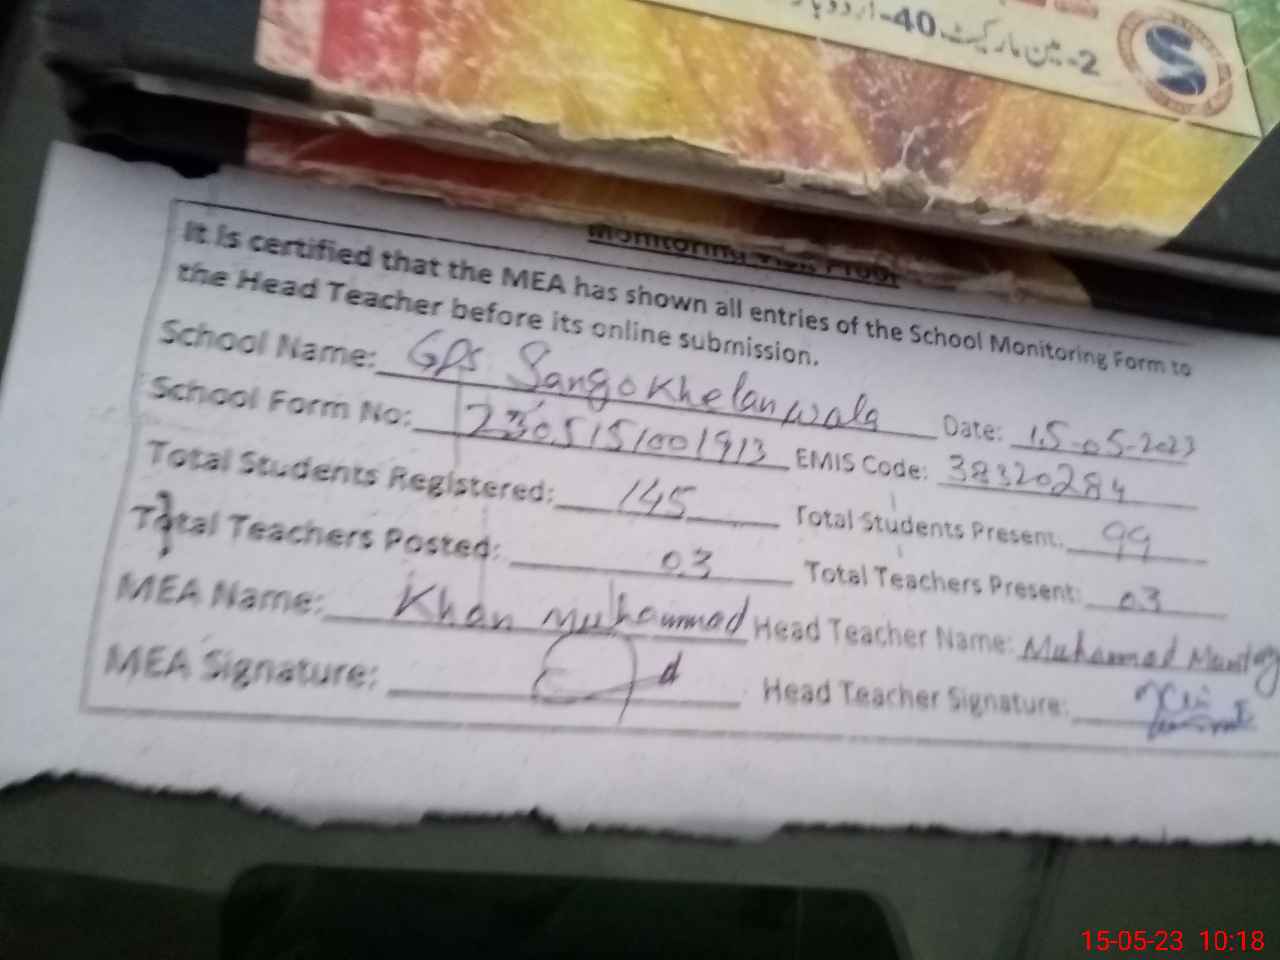 2-مین مارکیٹ 40-اردو
Monitoring Visit Proof
It is certified that the MEA has shown all entries of the School Monitoring Form to
the Head Teacher before its online submission.
School Name: GPS Sango Khelanwala Date: 15-05-2023
School Form No: 2305151001913 EMIS Code: 38320284
Total Students Registered: 145 Total Students Present: 99
Total Teachers Posted: 03 Total Teachers Present: 03
MEA Name: Khan Muhammad Head Teacher Name: Muhammad
MEA Signature: Head Teacher Signature:
15-05-23 10:18